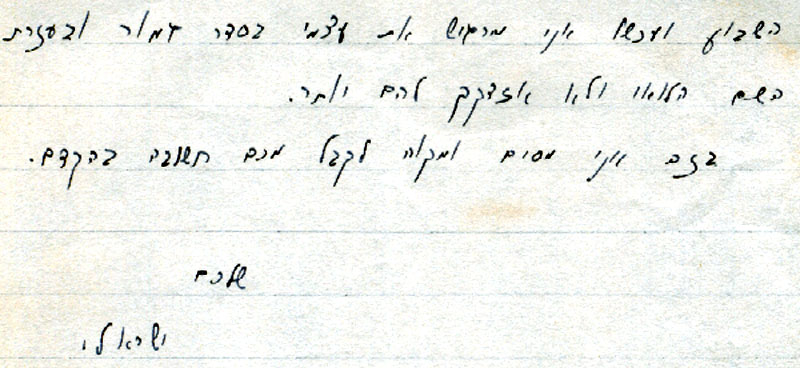 השבוע ועכשו אני מרגיש את עצמי בסדר גמור ובעזרת
השם הלואי ולא אזדקק להם יותר.
בזה אני מסים ומקוה לקבל מכם תשובה בהקדם.
שלכם
ישראלי